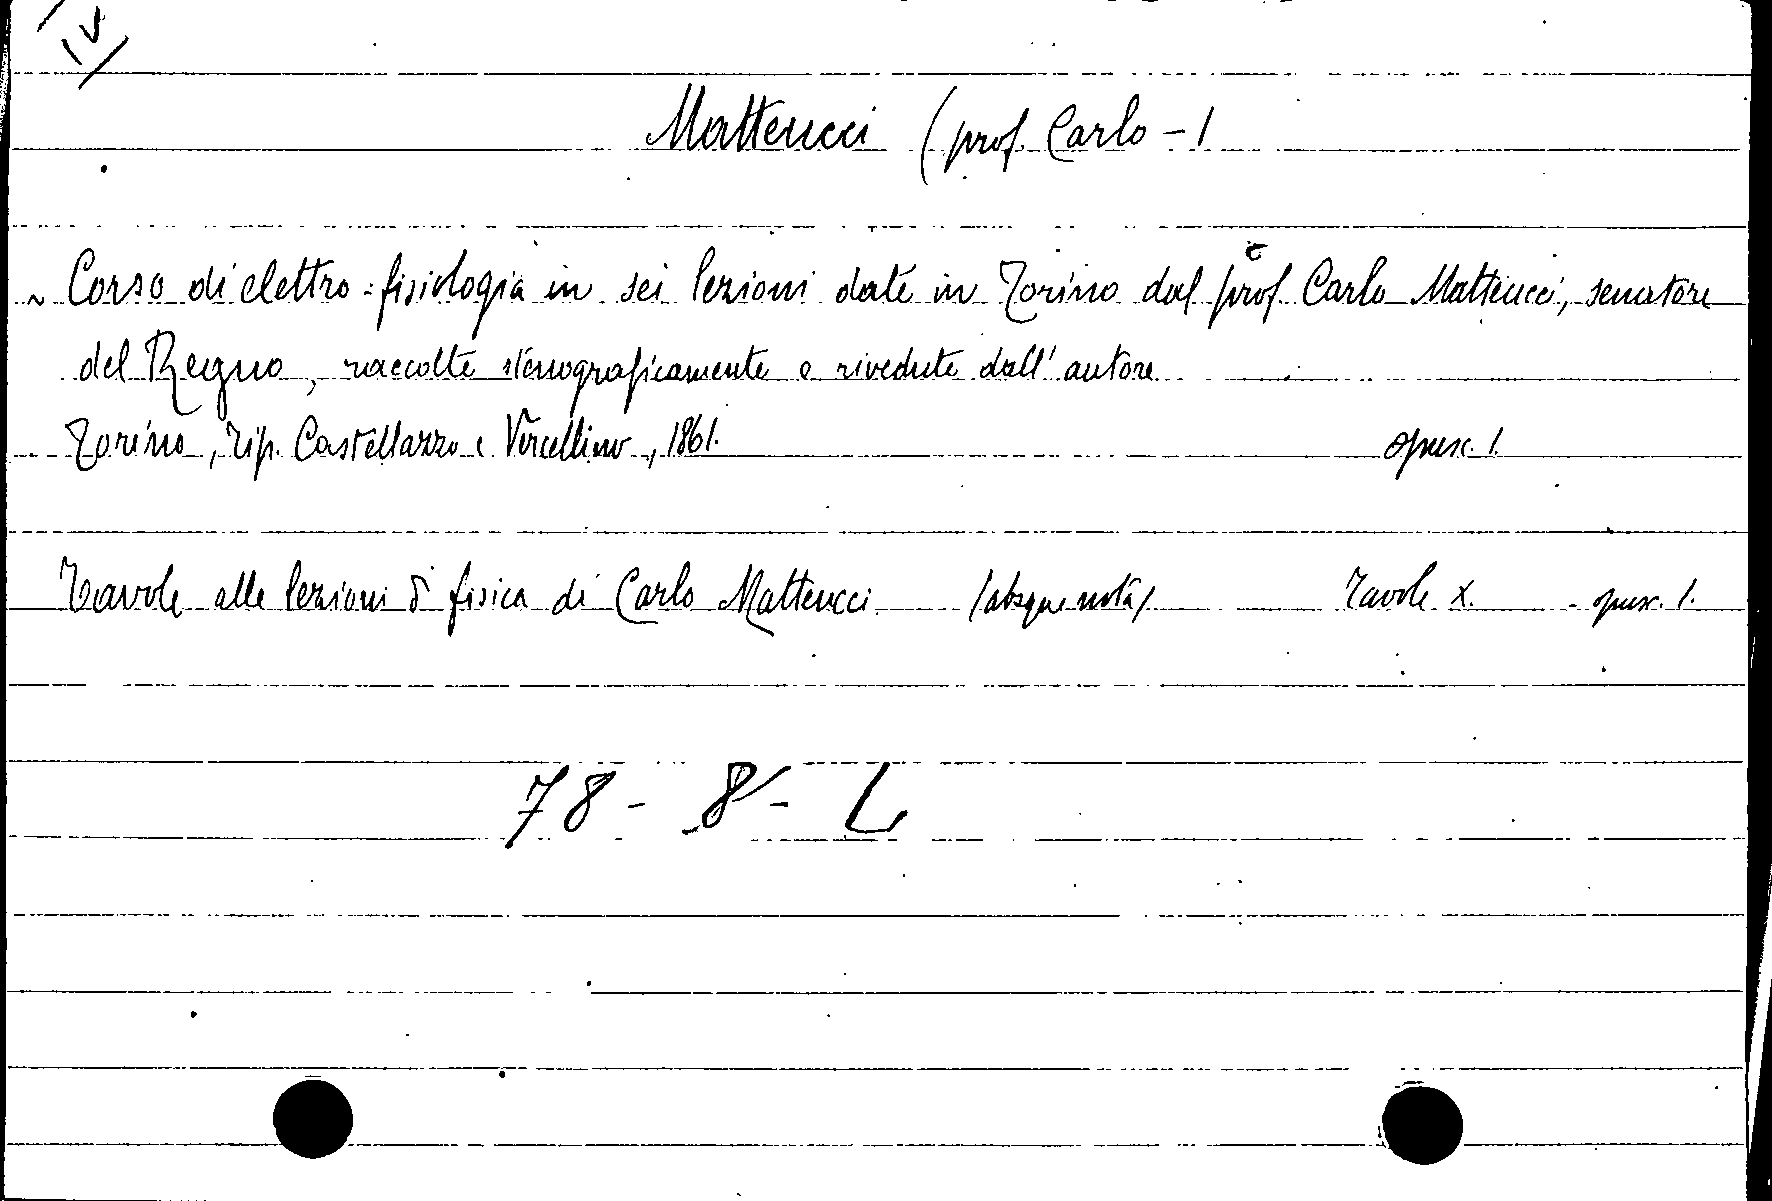 IV
Matteucci (prof. Carlo - )
Corso di elettro-fisiologia in sei lezioni date in Torino dal prof. Carlo Matteucci, senatore
del Regno, raccolte stenograficamente e rivedute dall'autore
Torino, Tip. Castellazzo e Vercellino, 1861. opusc. 1.
Tavole alle lezioni di fisica di Carlo Matteucci (absque nota) Tavole X. opusc. 1.
78 - 8 - L